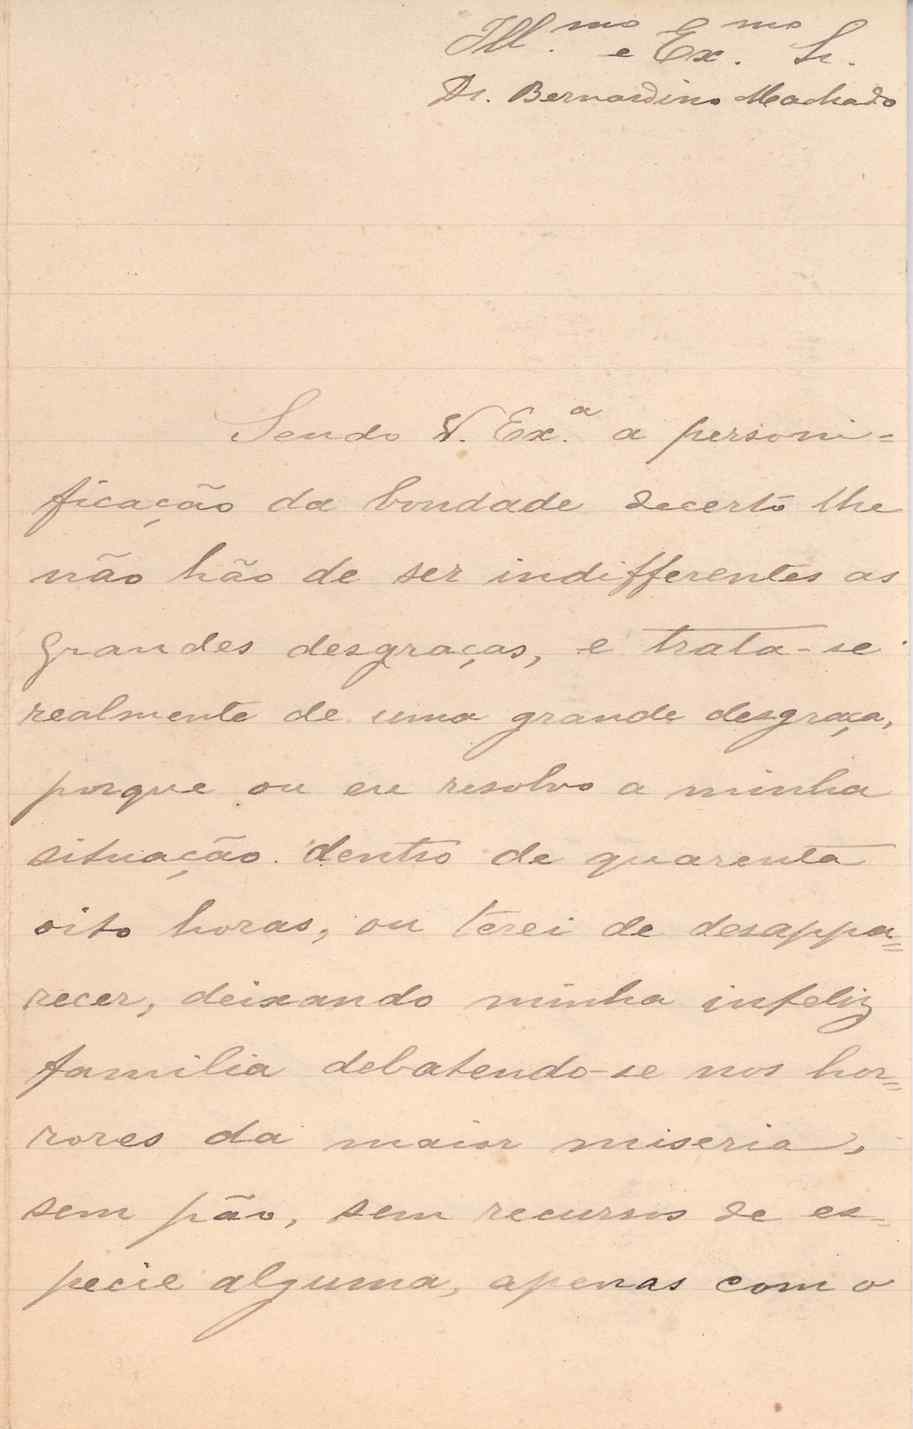 Ill.mo e Ex.mo Sr.
Dr. Bernardino Machado
Sendo V. Ex.a a personi=
ficação da bondade decerto lhe
não hão de ser indifferentes as
grandes desgraças, e trata-se
realmente de uma grande desgraça,
porque ou eu resolvo a minha
situação dentro de quarenta
oito horas, ou terei de desappa=
recer, deixando minha infeliz
familia debatendo-se nos hor=
rores da maior miseria,
sem pão, sem recursos de es=
pecie alguma, apenas com o